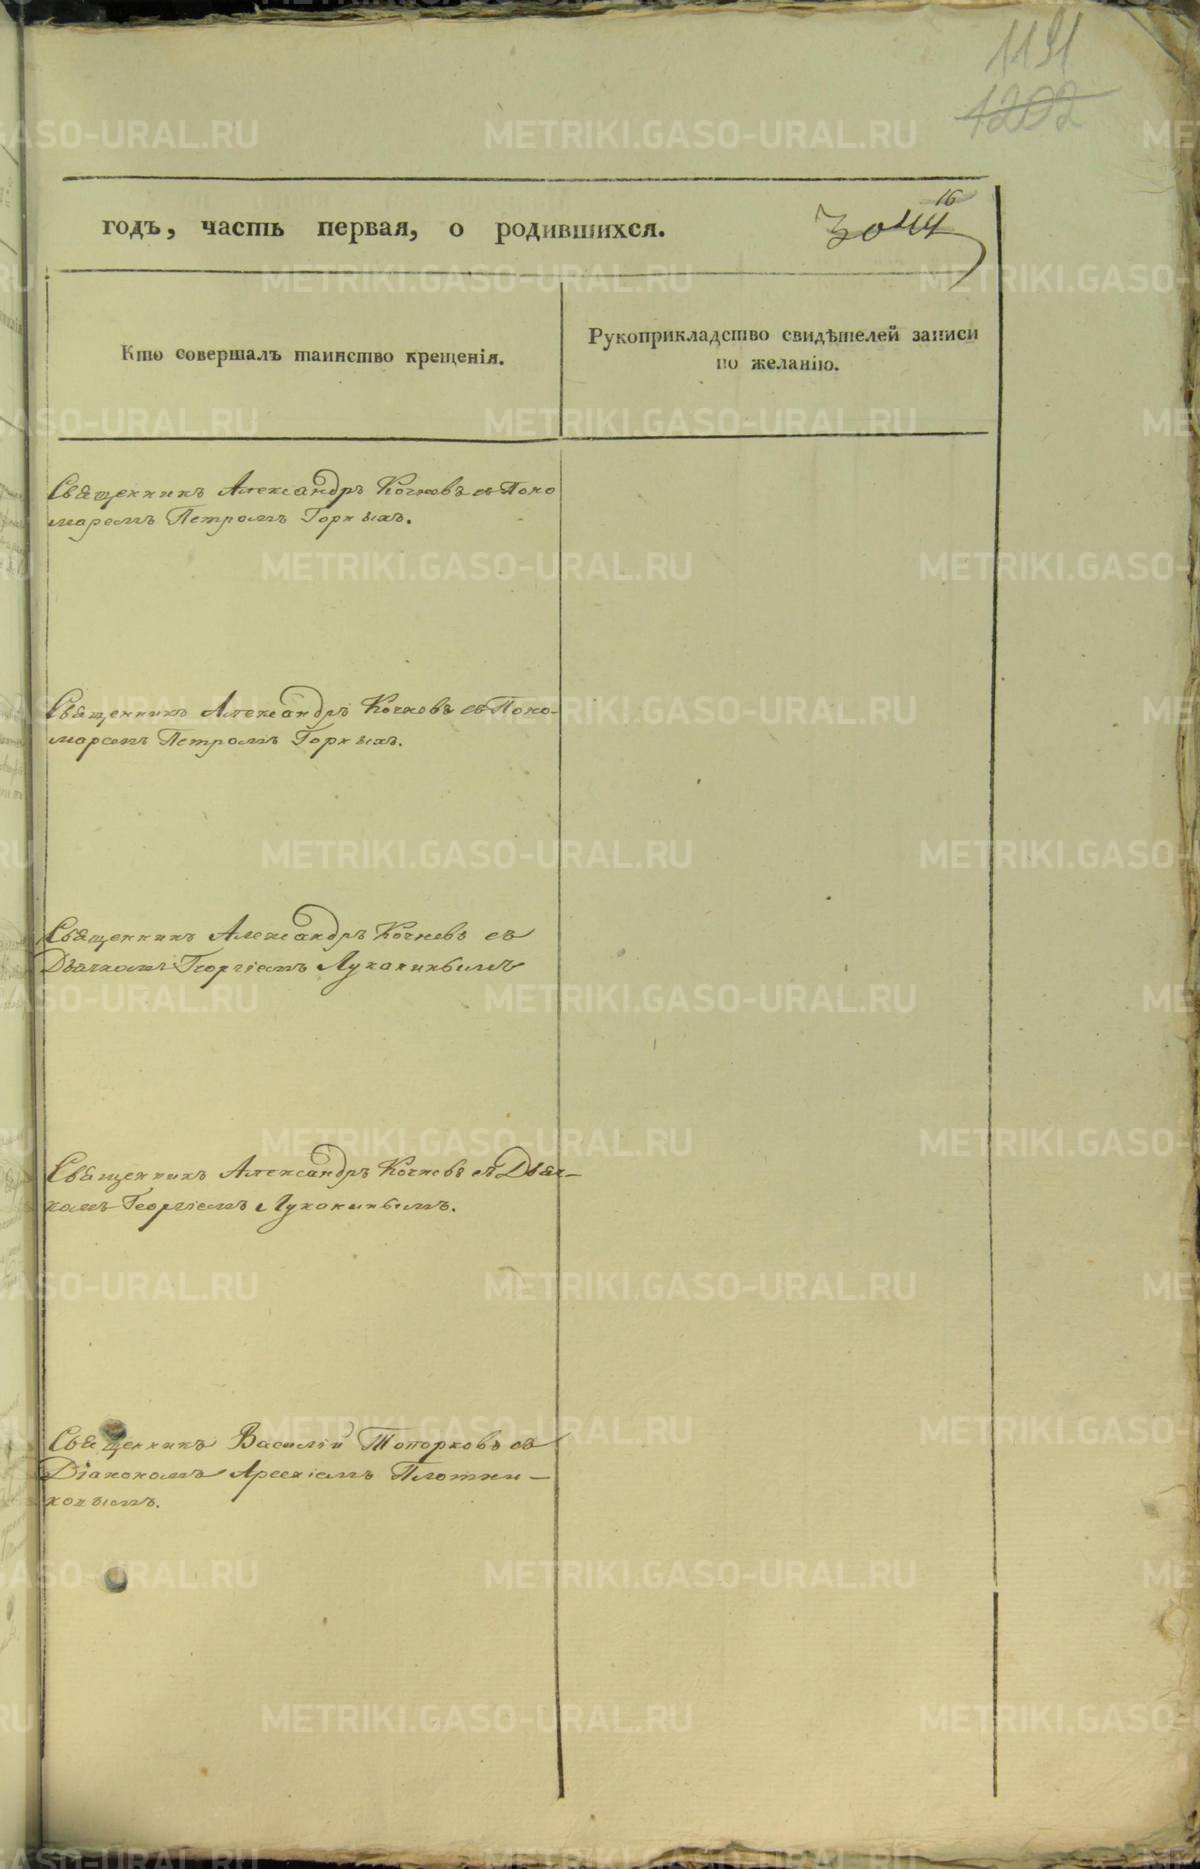 1191
1202
16
годъ, часть первая, о родившихся.
Кто совершалъ таинство крещенія.
Рукоприкладство свидѣтелей записи
по желанію.
Священникъ Александръ Кочневъ съ Поно
маремъ Петромъ Горныхъ.
Священникъ Александръ Кочневъ съ Поно-
маремъ Петромъ Горныхъ.
Священникъ Александръ Кочневъ съ
Дьячкомъ Георгіемъ Луканинымъ
Священникъ Александръ Кочневъ съ Дьяч-
комъ Георгіемъ Луканинымъ.
Священникъ Василій Топорковъ съ
Діакономъ Арсеніемъ Плотни-
ковымъ.
METRIKI.GASO-URAL.RU